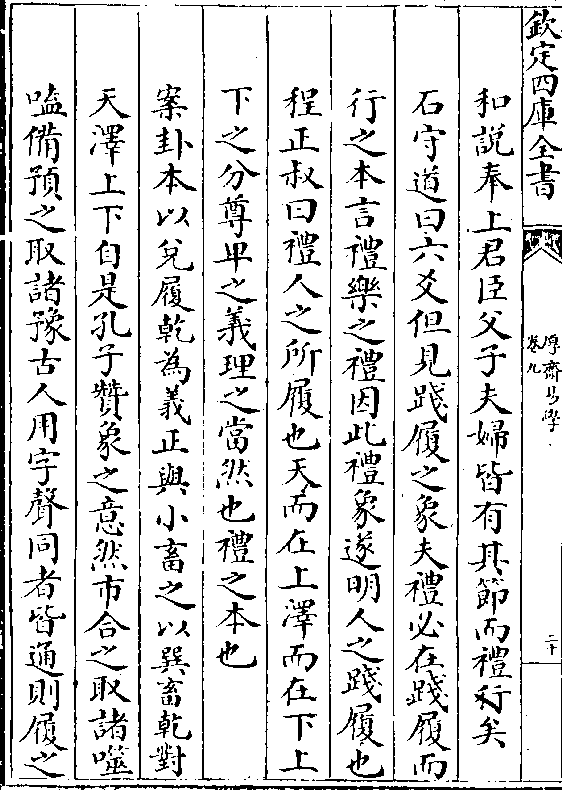 欽定四庫全書
厚齋易學
卷九
二十
和說奉上君臣父子夫婦皆有其節而禮行矣
石守道曰六爻但見踐履之象夫禮必在踐履而
行之本言禮樂之禮因此禮象遂明人之踐履也
程正叔曰禮人之所履也天而在上澤而在下上
下之分尊卑之義理之當然也禮之本也
案卦本以兌履乾為義正與小畜之以巽畜乾對
天澤上下自是孔子贊象之意然市合之取諸噬
嗑備預之取諸豫古人用字聲同者皆通則履之